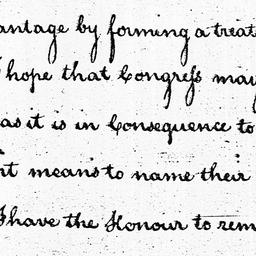 antage by forming a treat
I hope that Congreſs may
as it is in Consequence to
nt means to name their
I have the Honour to rem